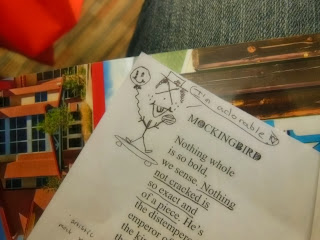 I'm adorable
MOCKINGBIRD
Nothing whole
is so bold,
we sense. Nothing
not cracked is
so exact and
of a piece. He's
the distempered
emperor of